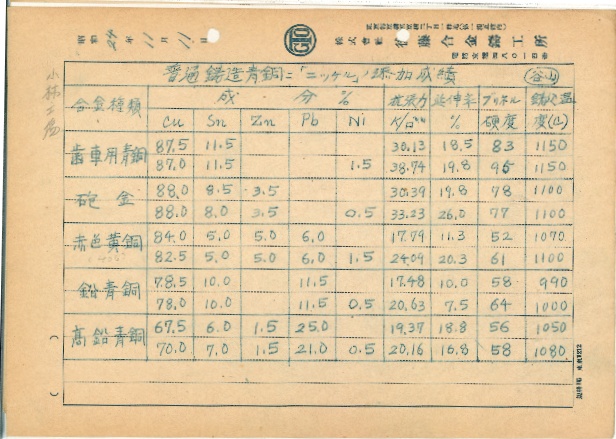 昭和 24 年 11 月 11 日
GTO
株式會社 後藤合金器工所
小林工場
普通鋳造青銅ニ「ニッケル」添加成績
谷山
合金種類 成分% 抗張力 延伸率 ブリネル 鋳込温
Cu Sn Zn Pb Ni K/□mm % 硬度 度(C)
歯車用青銅 87.5 11.5 30.13 18.5 83 1150
87.0 11.5 1.5 38.74 19.8 95 1150
砲金 88.0 8.5 3.5 30.39 19.8 78 1100
88.0 8.0 3.5 0.5 33.23 26.0 77 1100
赤色黄銅 84.0 5.0 5.0 6.0 17.79 11.3 52 1070
82.5 5.0 5.0 6.0 1.5 24.09 20.3 61 1100
鉛青銅 78.5 10.0 11.5 17.48 10.0 58 990
78.0 10.0 11.5 0.5 20.63 7.5 64 1000
高鉛青銅 67.5 6.0 1.5 25.0 19.37 18.8 56 1050
70.0 7.0 1.5 21.0 0.5 20.16 16.8 58 1080